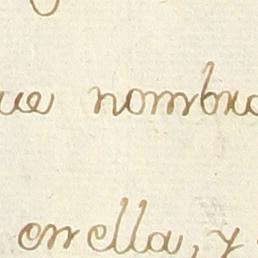 ue nombra
en ella, y